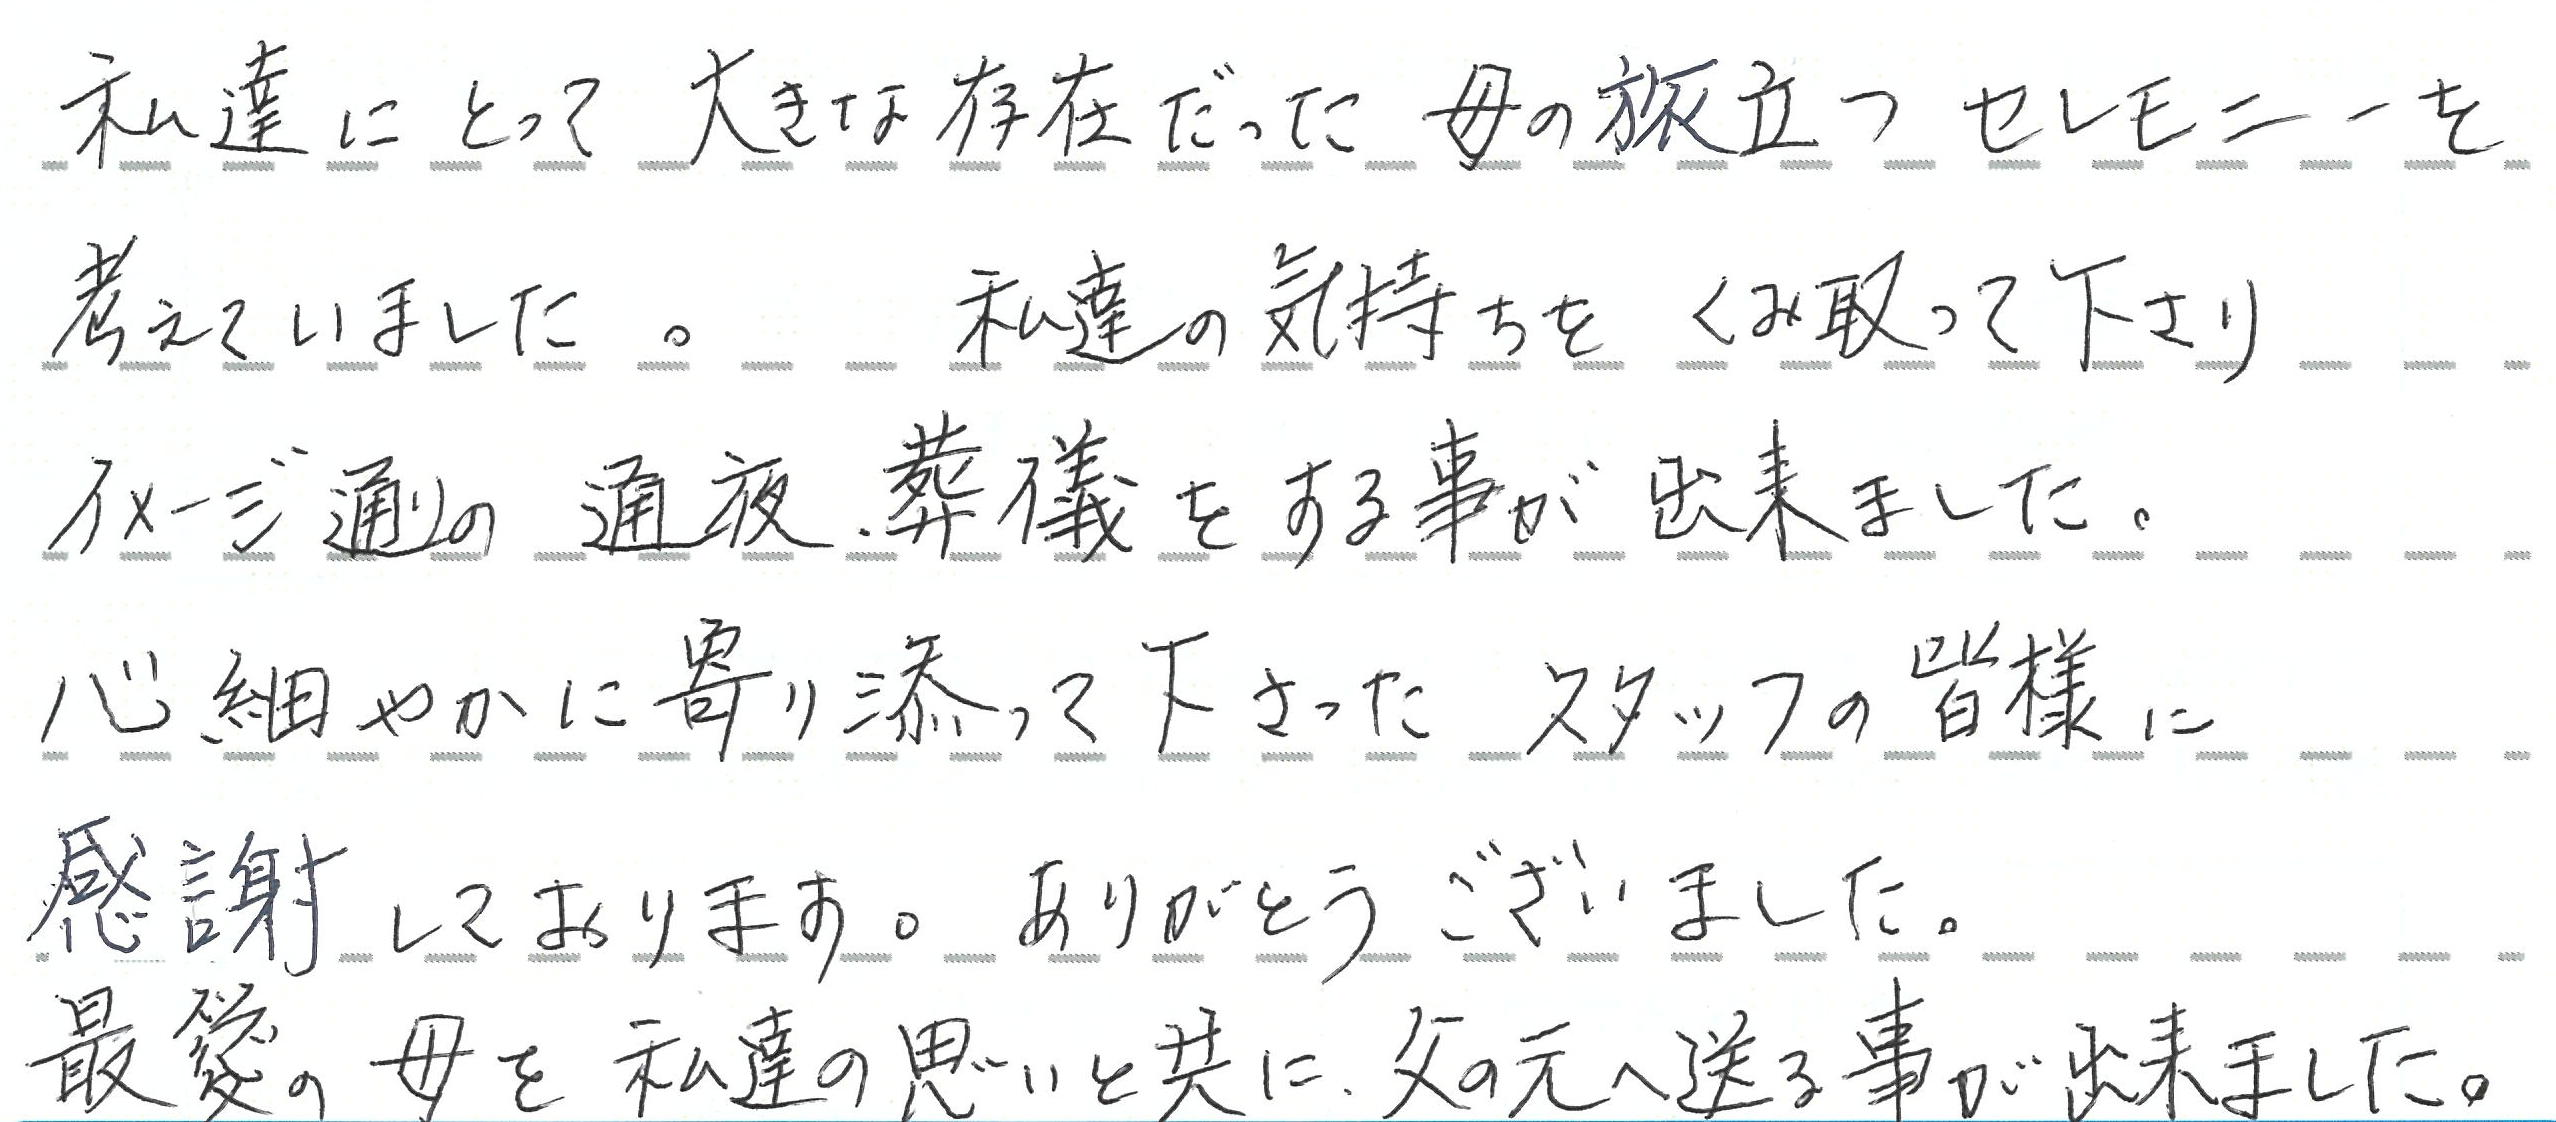 私達にとって 大きな存在だった 母の旅立つ セレモニーを
考えていました。 私達の気持ちを くみ取って下さり
イメージ通りの 通夜、葬儀をする事が 出来ました。
心細やかに寄り添って下さった スタッフの皆様に
感謝しております。 ありがとうございました。
最愛の 母を 私達の思いと共に、父の元へ送る事が出来ました。